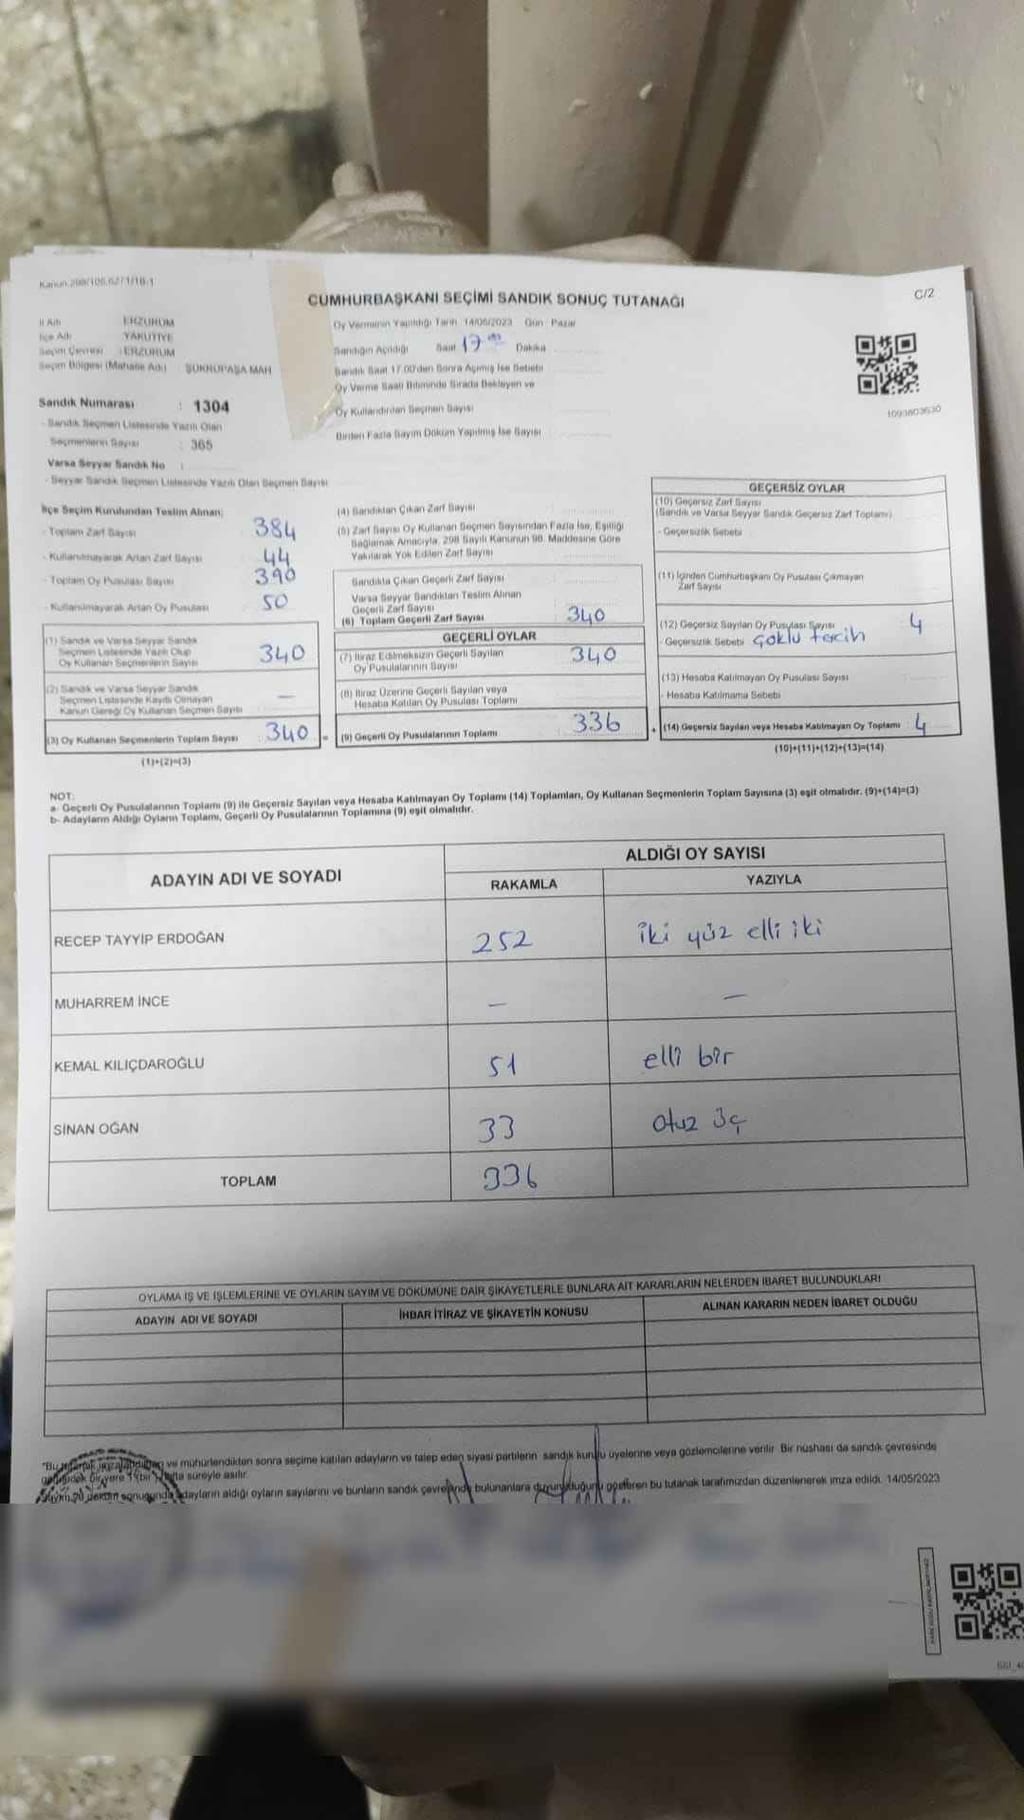 Kanun.298/105.6271/16-1
C/2
CUMHURBAŞKANI SEÇİMİ SANDIK SONUÇ TUTANAĞI
İl Adı : ERZURUM
İlçe Adı : YAKUTİYE
Seçim Çevresi : ERZURUM
Seçim Bölgesi (Mahalle Adı) : ŞÜKRÜPAŞA MAH
Sandık Numarası : 1304
- Sandık Seçmen Listesinde Yazılı Olan
Seçmenlerin Sayısı : 365
Varsa Seyyar Sandık No :
- Seyyar Sandık Seçmen Listesinde Yazılı Olan Seçmen Sayısı
Oy Vermenin Yapıldığı Tarih 14/05/2023 Gün : Pazar
Sandığın Açıldığı Saat 17 Dakika
Sandık Saat 17.00'den Sonra Açılmış İse Sebebi
Oy Verme Saati Bitiminde Sırada Bekleyen ve
Oy Kullandırılan Seçmen Sayısı
Birden Fazla Sayım Döküm Yapılmış İse Sayısı
1093603630
İlçe Seçim Kurulundan Teslim Alınan;
- Toplam Zarf Sayısı 384
- Kullanılmayarak Artan Zarf Sayısı 44
- Toplam Oy Pusulası Sayısı 390
- Kullanılmayarak Artan Oy Pusulası 50
(1) Sandık ve Varsa Seyyar Sandık
Seçmen Listesinde Yazılı Olup
Oy Kullanan Seçmenlerin Sayısı 340
(2) Sandık ve Varsa Seyyar Sandık
Seçmen Listesinde Kayıtlı Olmayan
Kanun Gereği Oy Kullanan Seçmen Sayısı —
(3) Oy Kullanan Seçmenlerin Toplam Sayısı : 340
(1)+(2)=(3)
(4) Sandıktan Çıkan Zarf Sayısı
(5) Zarf Sayısı Oy Kullanan Seçmen Sayısından Fazla İse, Eşitliği
Sağlamak Amacıyla, 298 Sayılı Kanunun 98. Maddesine Göre
Yakılarak Yok Edilen Zarf Sayısı
Sandıkta Çıkan Geçerli Zarf Sayısı
Varsa Seyyar Sandıktan Teslim Alınan
Geçerli Zarf Sayısı
(6) Toplam Geçerli Zarf Sayısı 340
GEÇERLİ OYLAR
(7) İtiraz Edilmeksizin Geçerli Sayılan
Oy Pusulalarının Sayısı 340
(8) İtiraz Üzerine Geçerli Sayılan veya
Hesaba Katılan Oy Pusulası Toplamı
(9) Geçerli Oy Pusulalarının Toplamı 336
GEÇERSİZ OYLAR
(10) Geçersiz Zarf Sayısı
(Sandık ve Varsa Seyyar Sandık Geçersiz Zarf Toplamı)
- Geçersizlik Sebebi
(11) İçinden Cumhurbaşkanı Oy Pusulası Çıkmayan
Zarf Sayısı
(12) Geçersiz Sayılan Oy Pusulası Sayısı 4
- Geçersizlik Sebebi çoklu tercih
(13) Hesaba Katılmayan Oy Pusulası Sayısı
- Hesaba Katılmama Sebebi
(14) Geçersiz Sayılan veya Hesaba Katılmayan Oy Toplamı : 4
(10)+(11)+(12)+(13)=(14)
NOT:
a- Geçerli Oy Pusulalarının Toplamı (9) ile Geçersiz Sayılan veya Hesaba Katılmayan Oy Toplamı (14) Toplamları, Oy Kullanan Seçmenlerin Toplam Sayısına (3) eşit olmalıdır. (9)+(14)=(3)
b- Adayların Aldığı Oyların Toplamı, Geçerli Oy Pusulalarının Toplamına (9) eşit olmalıdır.
ADAYIN ADI VE SOYADI
ALDIĞI OY SAYISI
RAKAMLA YAZIYLA
RECEP TAYYİP ERDOĞAN 252 iki yüz elli iki
MUHARREM İNCE — —
KEMAL KILIÇDAROĞLU 51 elli bir
SİNAN OĞAN 33 otuz üç
TOPLAM 336
OYLAMA İŞ VE İŞLEMLERİNE VE OYLARIN SAYIM VE DÖKÜMÜNE DAİR ŞİKAYETLERLE BUNLARA AİT KARARLARIN NELERDEN İBARET BULUNDUKLARI
ADAYIN ADI VE SOYADI İHBAR İTİRAZ VE ŞİKAYETİN KONUSU ALINAN KARARIN NEDEN İBARET OLDUĞU
"Bu ve mühürlendikten sonra seçime katılan adayların ve talep eden siyasi partilerin sandık kurulu üyelerine veya gözlemcilerine verilir. Bir nüshası da sandık çevresinde
bir yere 1 bir hafta süreyle asılır.
Sayım ve döküm sonucunda adayların aldığı oyların sayılarını ve bunların sandık çevresinde bulunanlara duyurulduğunu gösteren bu tutanak tarafımızdan düzenlenerek imza edildi. 14/05/2023